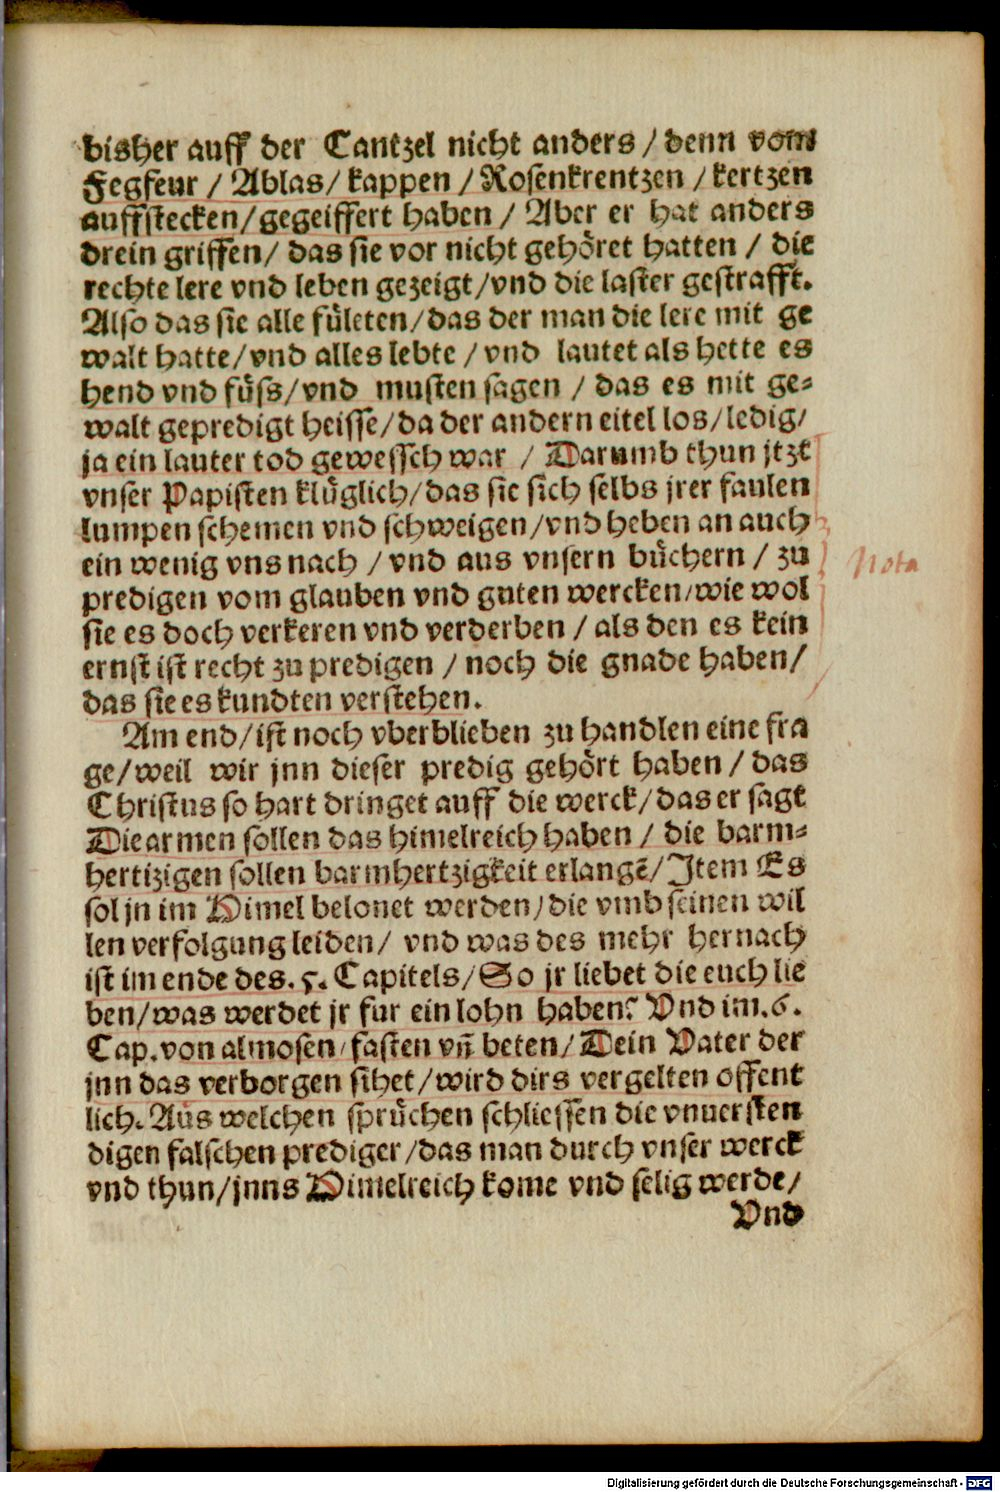 bisher auff der Cantzel nicht anders / denn vom
Fegfeur / Ablas / kappen / Rosenkrentzen / kertzen
auffstecken / gegeiffert haben / Aber er hat anders
drein griffen / das sie vor nicht gehöret hatten / die
rechte lere vnd leben gezeigt / vnd die laster gestrafft.
Also das sie alle fületen / das der man die lere mit ge
walt hatte / vnd alles lebte / vnd lautet als hette es
hend vnd füss / vnd musten sagen / das es mit ge⸗
walt gepredigt heisse / da der andern eitel los / ledig /
ja ein lauter tod gewessch war / Darumb thun jtzt
vnser Papisten klüglich / das sie sich selbs jrer faulen
lumpen schemen vnd schweigen / vnd heben an auch
ein wenig vns nach / vnd aus vnsern büchern / zu
predigen vom glauben vnd guten wercken / wie wol
sie es doch verkeren vnd verderben / als den es kein
ernst ist recht zu predigen / noch die gnade haben /
das sie es kundten verstehen.
Nota
Am end / ist noch vberblieben zu handlen eine fra
ge / weil wir jnn dieser predig gehört haben / das
Christus so hart dringet auff die werck / das er sagt
Die armen sollen das himelreich haben / die barm⸗
hertizigen sollen barmhertzigkeit erlangē / Item Es
sol jn im Himel belonet werden / die vmb seinen wil
len verfolgung leiden / vnd was des mehr hernach
ist im ende des. 5. Capitels / So jr liebet die euch lie
ben / was werdet jr fur ein lohn haben? Vnd im. 6.
Cap. von almosen / fasten vñ beten / Dein Vater der
jnn das verborgen sihet / wird dirs vergelten offent
lich. Aus welchen sprüchen schliessen die vnuersten
digen falschen prediger / das man durch vnser werck
vnd thun / jnns Himelreich kome vnd selig werde /
Vnd
Digitalisierung gefördert durch die Deutsche Forschungsgemeinschaft - DFG